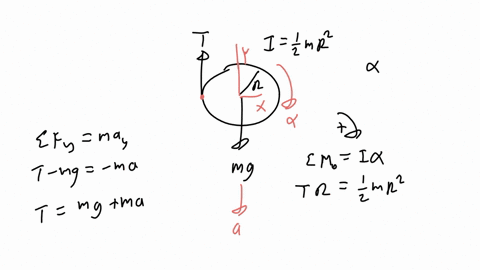 T
I = ½mR²
y
R
x
α
α
mg
a
ΣFy = may
T-mg = -ma
T = mg +ma
+
ΣMo = Iα
TR = ½mR²